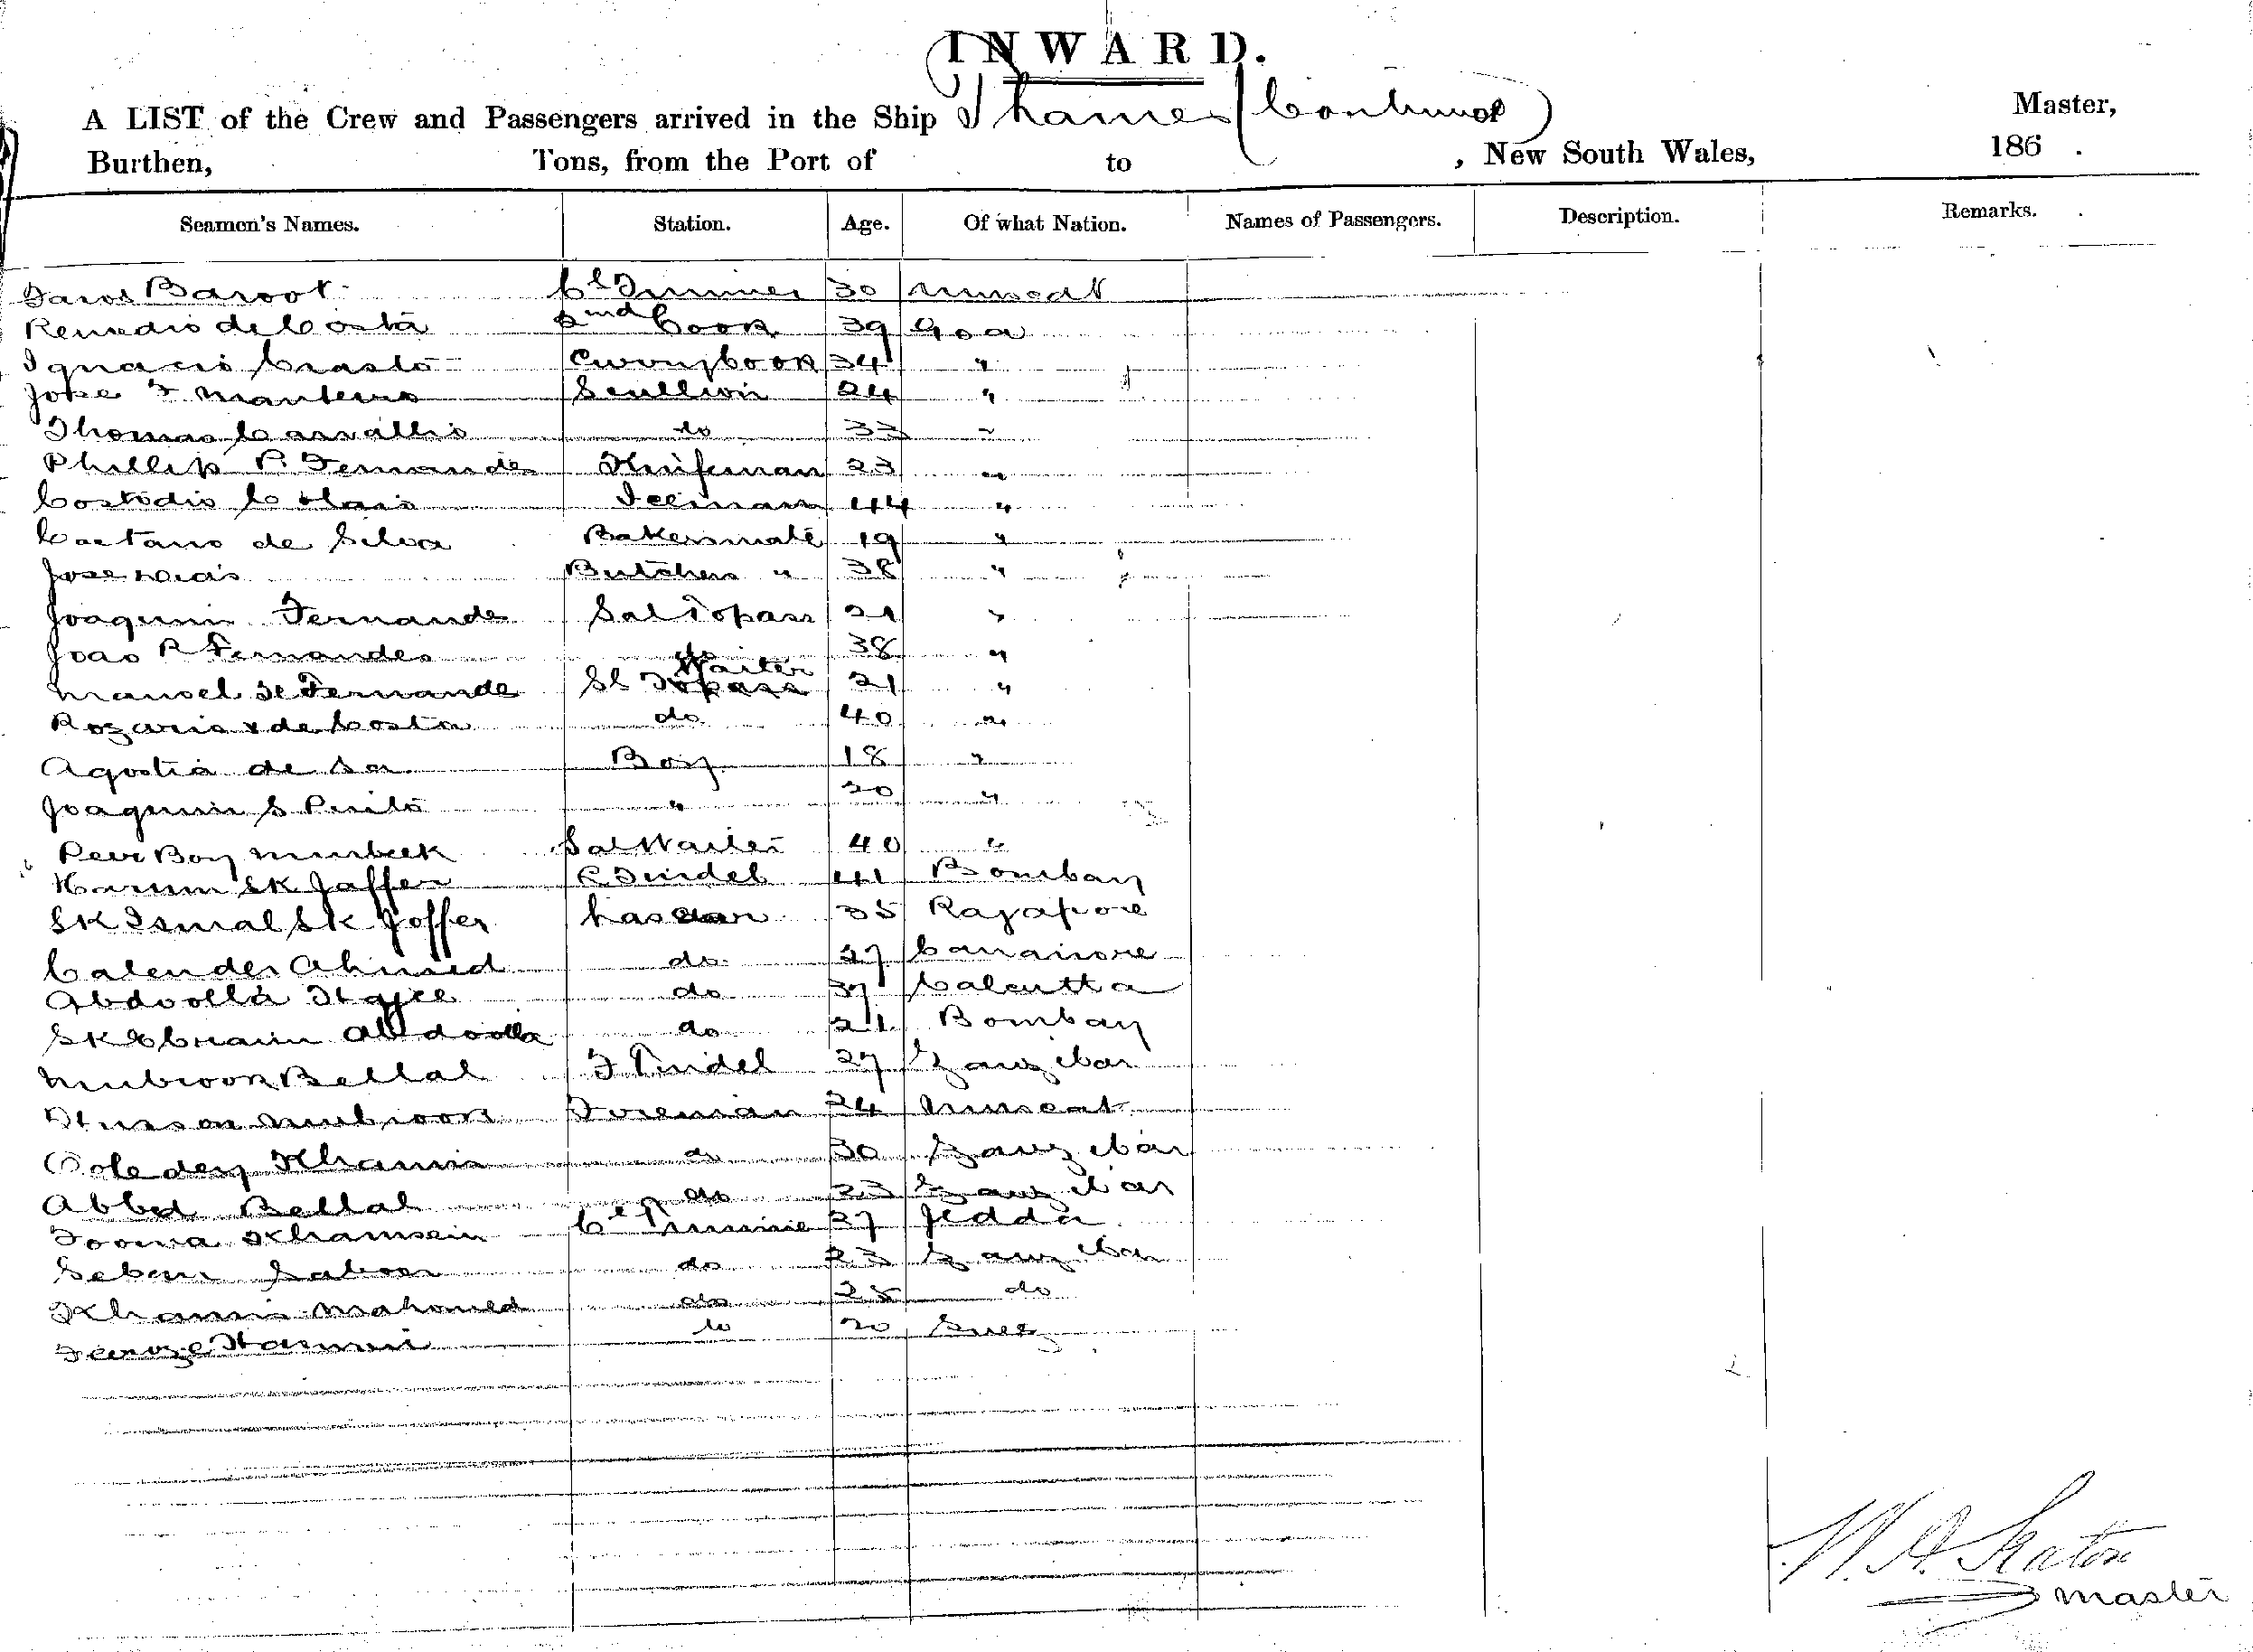 INWARD.
A LIST of the Crew and Passengers arrived in the Ship Thames (Continued) Master,
Burthen, Tons, from the Port of to , New South Wales, 186 .
Seamen's Names. Station. Age. Of what Nation. Names of Passengers. Description. Remarks.
Baroot Cl Trimmer 30 Muscat
Remedio de Costa 2nd Cook 39 Goa
Ignacio Crasto Crewscook 34 "
Jose F Monteiro Scullion 24 "
Thomas Carvallio do 33 "
Phillip P. Fernandes 23 "
Costodio Colais 44 "
Caetano de Silva Bakersmate 19 "
Jose Dias Butchers " 38 "
Joaquim Fernande Sal Topass 21 "
Joao R Fernandes do 38 "
Manoel Fernande Sl Waiter 21 "
Rozario de Costa do 40 "
Agostia de Sa Boy 18 "
Joaquim S Pinto " 20 "
Peer Boy Sal Waiter 40 "
Karim SK Jaffer Tindel 41 Bombay
SK Ismal SK Joffer Lascar 35 Rajapore
Calender Ahmed do 27 Cananore
Abdoolla Hajee do 37 Calcutta
SK Ebraim Abdoolla do 21 Bombay
Mubrook Bellal F Tindel 27 Zanzibar
Mubrook Fireman 24 Muscat
Khamis do 30 Zanzibar
Abbed Bellal do 23 Zanzibar
Tooma Khamsein Cl Trimmer 27 Jedda
do 23 Zanzibar
Khamis Mahomed do 25 do
do 20 Suez
W. A. Seaton
Master